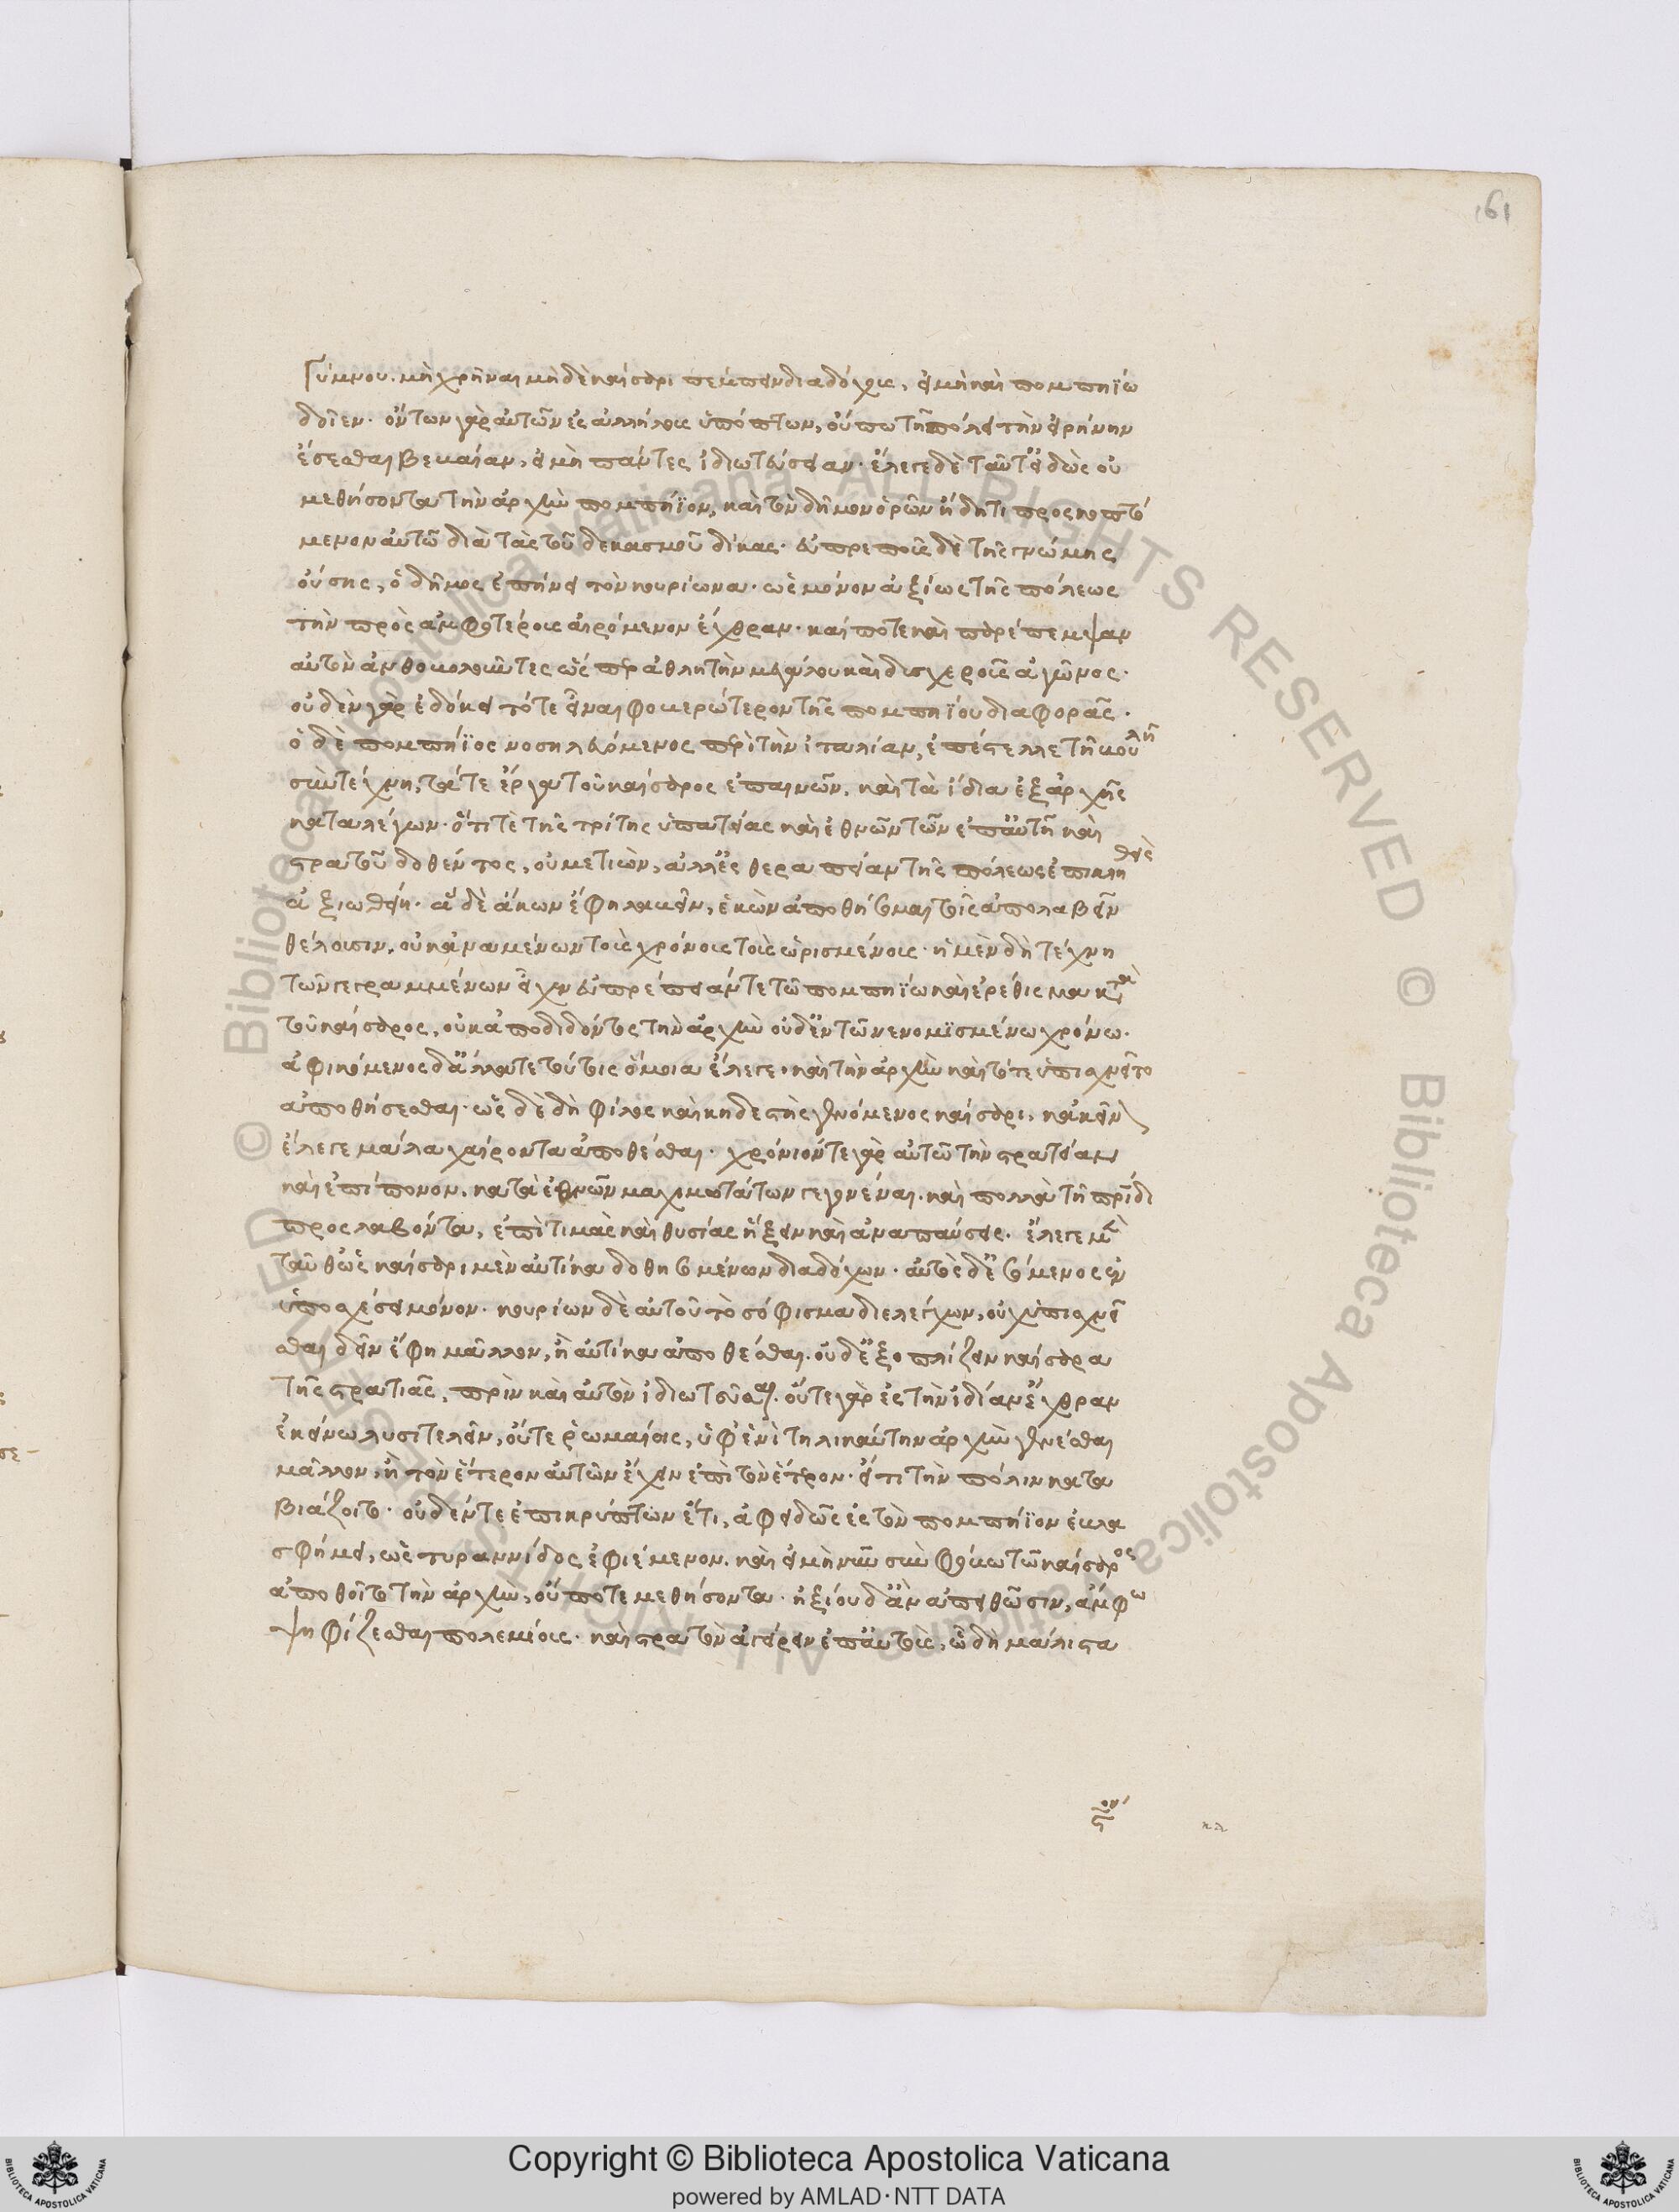 161
γύμνου. μὴ χρῆναι μὴ δὲ καίσαρι πέμπειν διαδόχους, εἰ μὴ καὶ πομπηΐω
δοῖεν. ὄντων γὰρ αὐτῶν ἐς ἀλλήλους ὑπόπτων, οὔπω τῆ πόλει τὴν εἰρήνην
ἔσεσθαι βεβαίαν, εἰ μὴ πάντες ἰδιωτεύσειαν. ἔλεγε δὲ ταῦτ' εἰδὼς οὐ
μεθήσοντα τὴν ἀρχὴν πομπήϊον, καὶ τὸν δῆμον ὁρῶν ἤδη τι προσκοπτό
μενον αὐτῶ διὰ τὰς τοῦ δεκασμοῦ δίκας. εὐπρεποῦς δὲ τῆς γνώμης
οὔσης, ὁ δῆμος ἐπήνει τὸν κουρίωνα. ὡς μόνον ἀξίως τῆς πόλεως
τὴν πρὸς ἀμφοτέρους αἰρόμενον ἔχθραν. καί ποτε καὶ παρέπεμψαν
αὐτὸν ἀνθοβολοῦντες ὥσπερ ἀθλητὴν μεγάλου καὶ δυσχεροῦς ἀγῶνος.
οὐδὲν γὰρ ἐδόκει τότε εἶναι φοβερώτερον τῆς πομπηΐου διαφορᾶς.
ὁ δὲ πομπήϊος νοσηλευόμενος περὶ τὴν ἰταλίαν, ἐπέστελλε τῆ βουλῆ
σὺν τέχνη, τά τε ἔργα τοῦ καίσαρος ἐπαινῶν, καὶ τὰ ἴδια ἐξ ἀρχῆς
καταλέγων. ὅτι τὲ τῆς τρίτης ὑπατείας καὶ ἐθνῶν τῶν ἐπ' αὐτῆ καὶ
στρατοῦ δοθέντος, οὐ μετιὼν, ἀλλ' ἐς θεραπείαν τῆς πόλεως ἐπικληθεὶς
ἀξιωθείη. ἃ δὲ ἄκων ἔφη λαβεῖν, ἑκὼν ἀποθήσομαι τοῖς ἀπολαβεῖν
θέλουσιν, οὐκ ἀναμένων τοὺς χρόνους τοὺς ὡρισμένους. ἡ μὲν δὴ τέχνη
τῶν γεγραμμένων εἶχεν εὐπρέπειάν τε τῶ πομπηΐω καὶ ἐρέθισμα κατὰ
τοῦ καίσαρος, οὐκ ἀποδιδόντος τὴν ἀρχὴν οὐδ' ἐν τῶ νενομϊσμένω χρόνω.
ἀφικόμενος δ' ἄλλα τε τούτοις ὅμοια ἔλεγε, καὶ τὴν ἀρχὴν καὶ τότε ὑπισχνεῖτο
ἀποθήσεσθαι. ὡς δὲ δὴ φίλος καὶ κηδεστὴς γενόμενος καίσαρι, κἀκεῖνον
ἔλεγε μάλα χαίροντα ἀποθέσθαι. χρόνιόν τε γὰρ αὐτῶ τὴν στρατείαν
καὶ ἐπίπονον. κατὰ ἐθνῶν μαχιμωτάτων γεγονέναι. καὶ πολλὰ τῆ πατρίδι
προσλαβόντα, ἐπὶ τιμὰς καὶ θυσίας ἥξειν καὶ ἀναπαύσεις. ἔλεγε μὲν
ταῦθ' ὡς καίσαρι μὲν αὐτίκα δοθησομένων διαδόχων. αὐτὸς δ' ἐσόμενος ἐν
ὑποσχέσει μόνον. κουρίων δὲ αὐτοῦ τὸ σόφισμα διελέγχων, οὐχ ὑπισχνεῖ
σθαι δεῖν ἔφη μᾶλλον, ἢ αὐτίκα ἀποθέσθαι. οὐδ' ἐξοπλίζειν καίσαρα
τῆς στρατιᾶς, πρὶν καὶ αὐτὸν ἰδιωτεῦσαι. οὔτε γὰρ ἐς τὴν ἰδίαν ἔχθραν
ἐκείνω λυσιτελεῖν, οὔτε ῥωμαίοις, ὑφ' ἑνὶ τηλικαύτην ἀρχὴν γενέσθαι
μᾶλλον, ἢ τὸν ἕτερον αὐτῶν ἔχειν ἐπὶ τὸν ἕτερον. εἴ τι τὴν πόλιν κατα
βιάζοιτο. οὐδέν τε ἐπικρύπτων ἔτι, ἀφειδῶς ἐς τὸν πομπήϊον ἐβλα
σφήμει, ὡς τυραννίδος ἐφιέμενον. καὶ εἰ μὴ νῦν σὺν φόβω τῶ καίσαρος
ἀποθοῖτο τὴν ἀρχὴν, οὔποτε μεθήσοντα. ἠξίου δ' ἂν ἀπειθῶσιν, ἄμφω
ψηφίζεσθαι πολεμίους. καὶ στρατὸν ἀγείρειν ἐπ' αὐτοὺς, ὧ δὴ μάλιστα
Copyright © Biblioteca Apostolica Vaticana
powered by AMLAD·NTT DATA